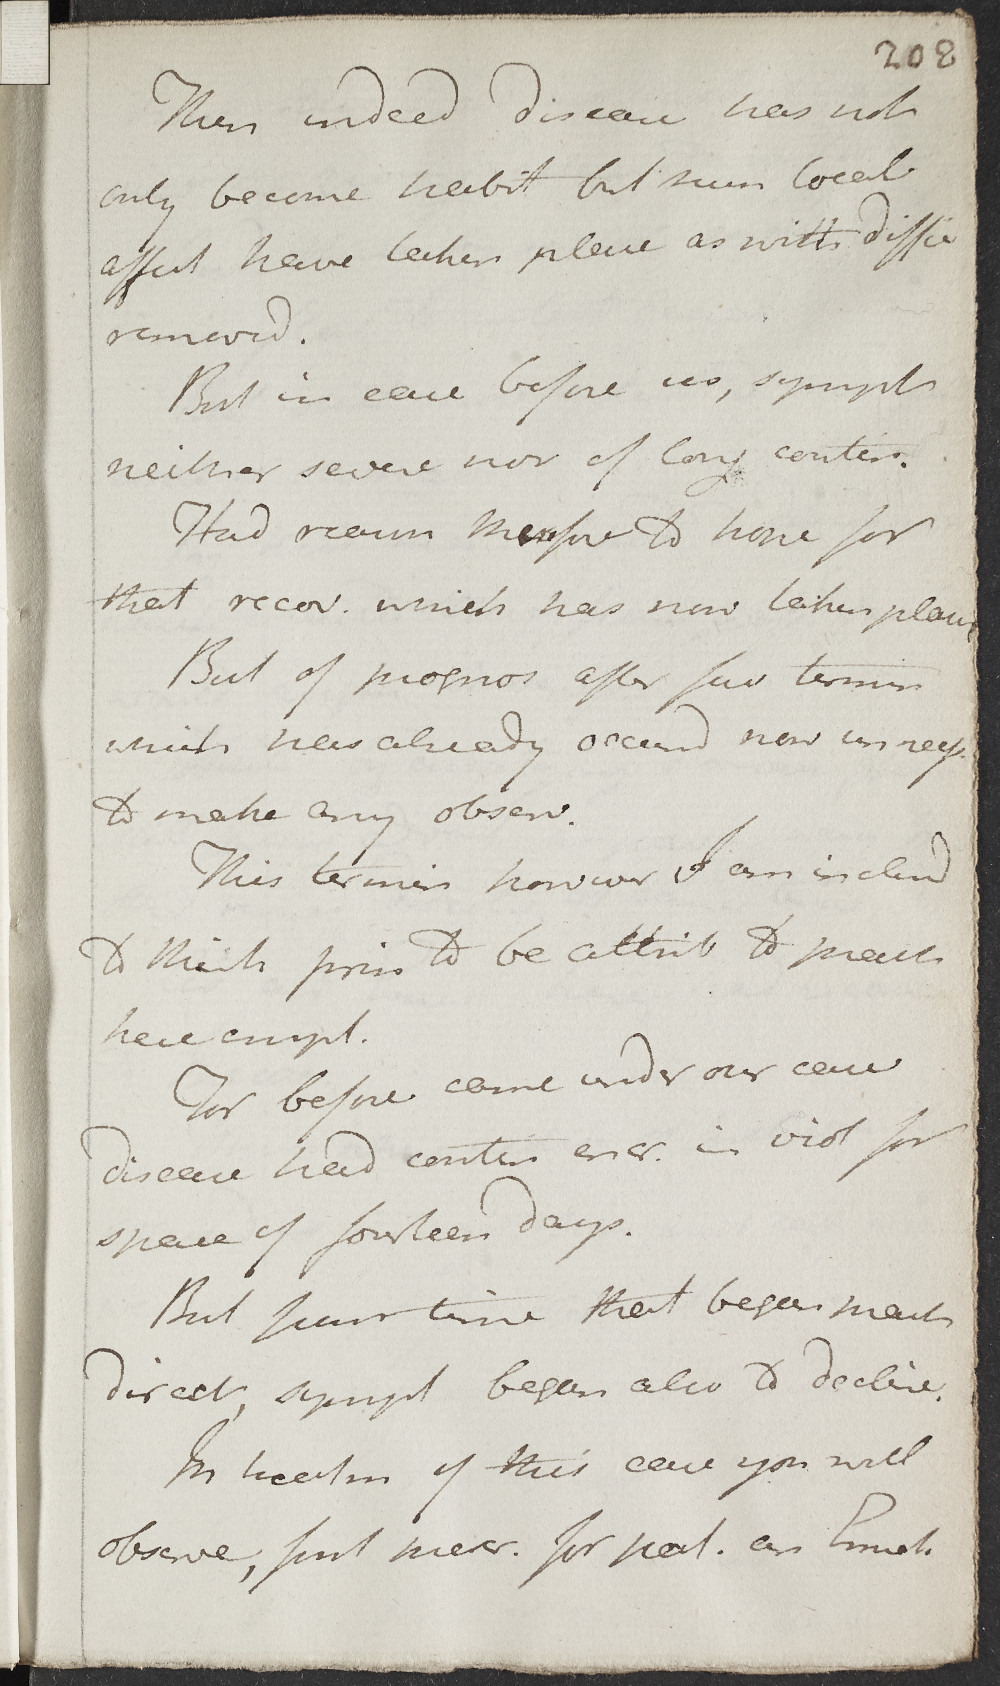 208
Then indeed disease has not
only become habit but even local
affect have taken place as with diffic
removed.
But in case before us, sympt
neither severe nor of long contin.
Had reason therefore to hope for
that recov. which has now taken place
But of prognos after fav termin
which has already occurred now unnecess.
to make any observ.
This termin however I am inclined
to think prin to be attrib to pract
here empl.
For before came under our care
disease had contin in viol for
space of fourteen days.
But from time that began pract
direct, sympt began also to decline.
In treatm of this case you will
observe, first prescr. for pat. an Emet.